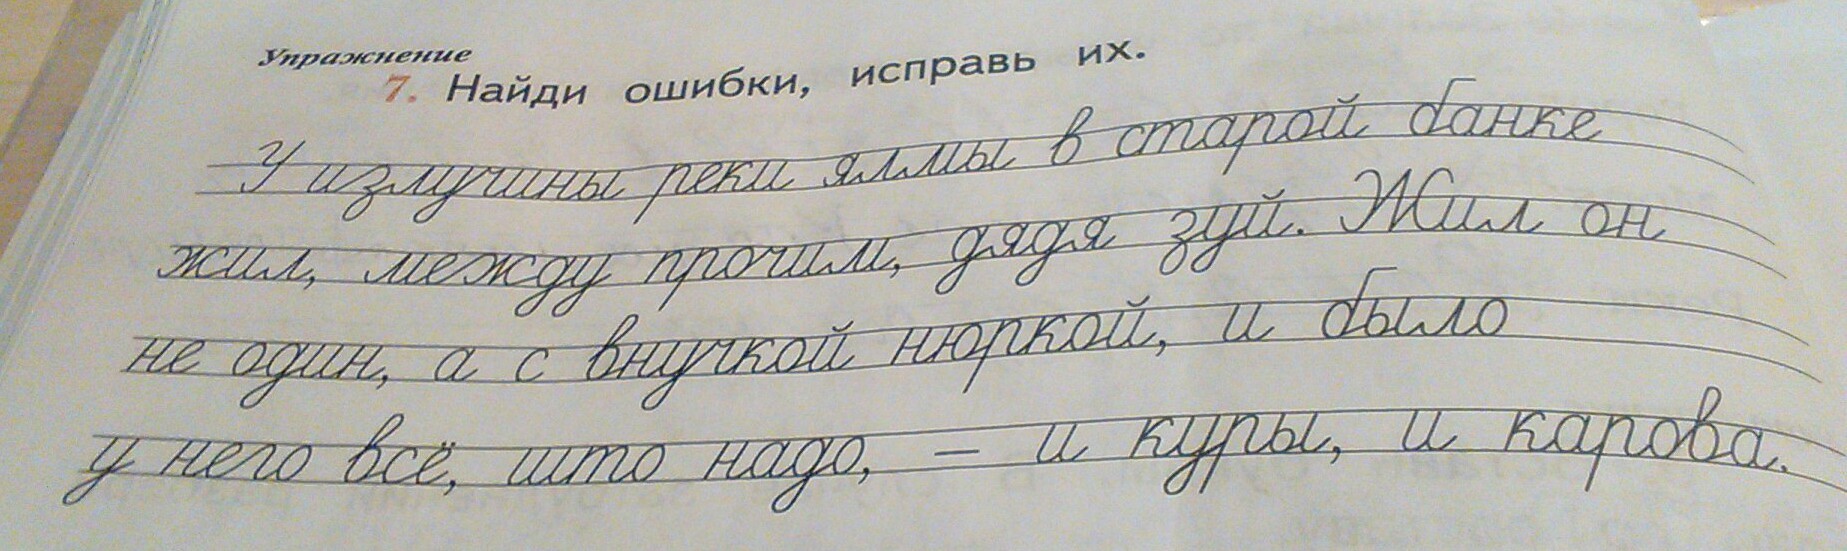 Упражнение
7. Найди ошибки, исправь их.
У излучины реки яллмы в старой банке
жил, между прочим, дядя зуй. Жил он
не один, а с внучкой нюркой, и было
у него всё, што надо, – и куры, и карова.